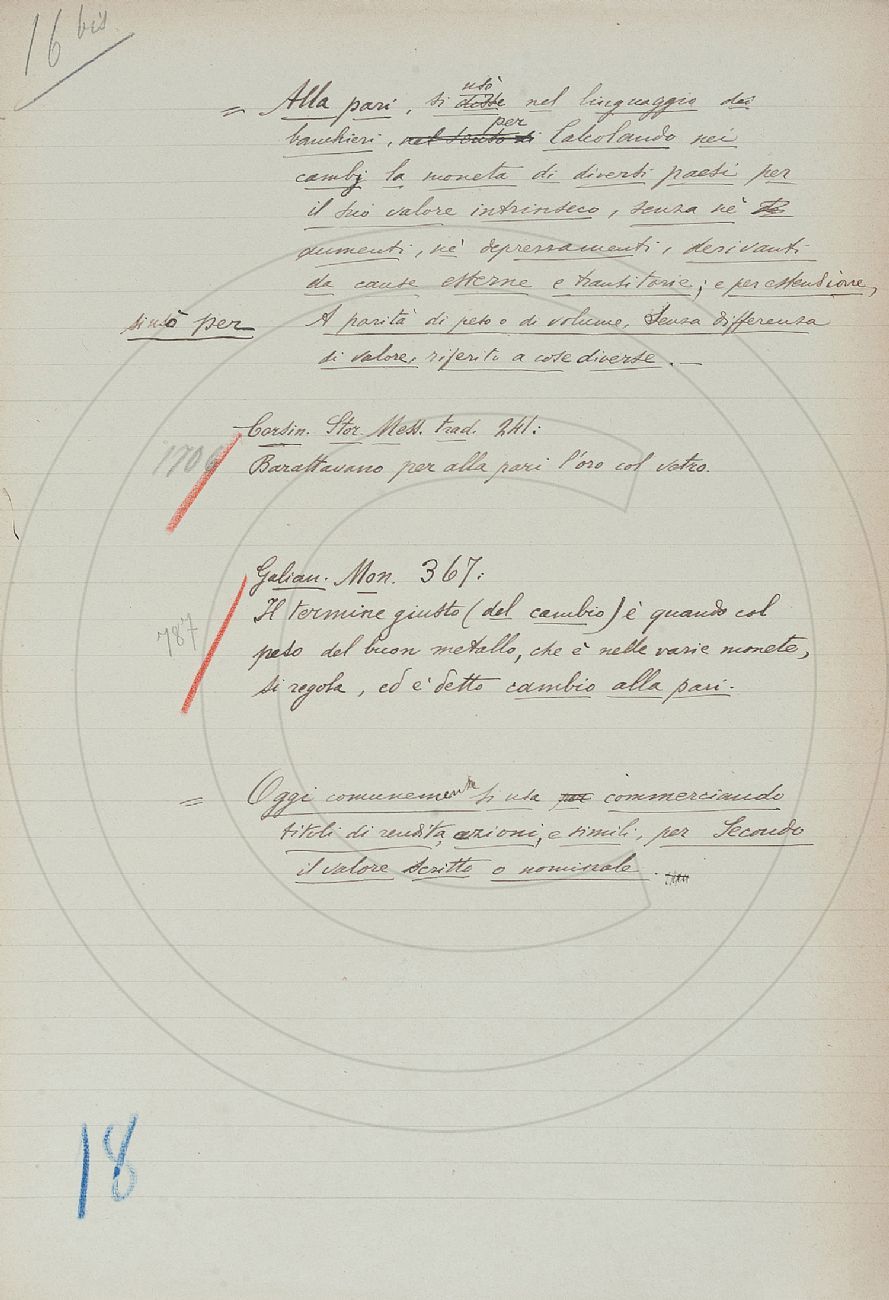 16 bis
= Alla pari, si usò disse nel linguaggio dei
banchieri, nel senso di per Calcolando nei
cambj la moneta di diversi paesi per
il suo valore intrinseco, senza nè
aumenti, nè depressamenti, derivanti
da cause esterne e transitorie; e per estensione,
si usò per A parità di peso o di volume, Senza differenza
di valore, riferito a cose diverse. —
Corsin. Stor. Mess. trad. 241:
1706
Barattavano per alla pari l'oro col vetro.
Galian. Mon. 367:
Il termine giusto (del cambio) è quando col
787
peso del buon metallo, che è nelle varie monete,
si regola, ed è detto cambio alla pari.
= Oggi comunemente si usa per commerciando
titoli di rendita, azioni, e simili, per Secondo
il valore scritto o nominale.
18